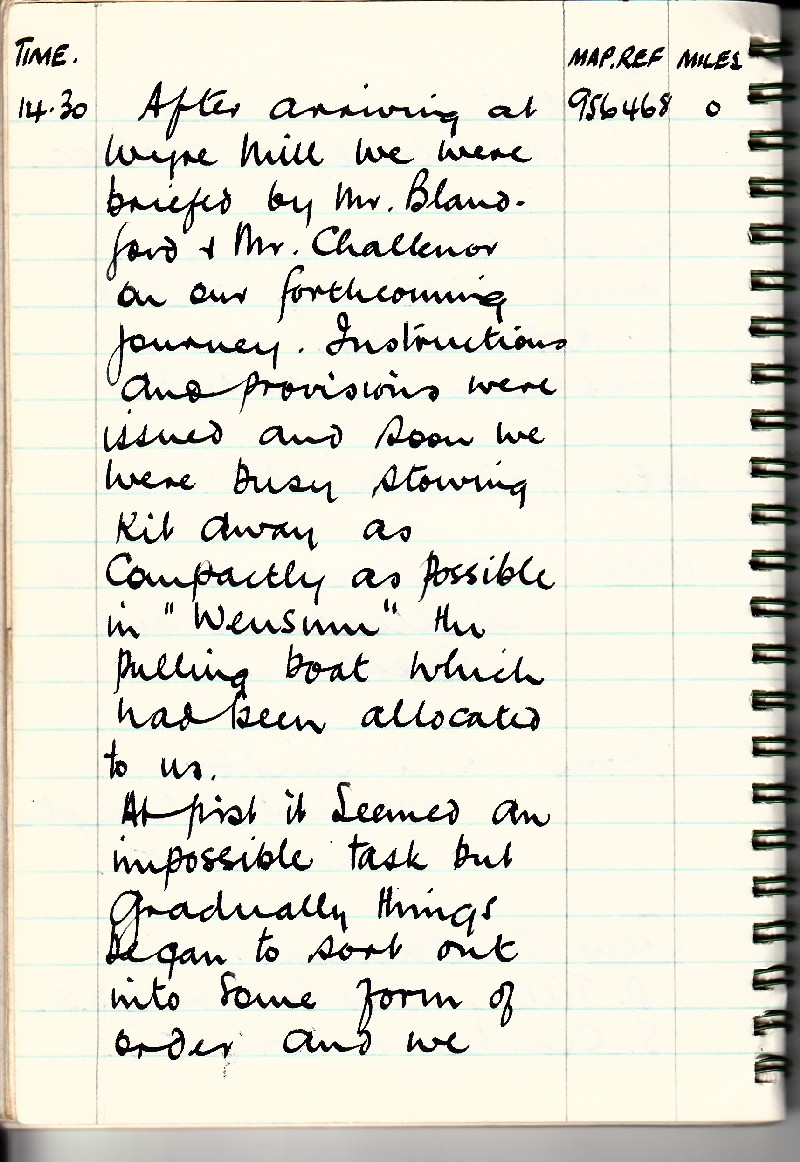 TIME. MAP.REF MILES
14.30 After arriving at 956468 0
Wyre Mill we were
briefed by Mr. Bland-
ford & Mr. Challenor
on our forthcoming
journey. Instructions
and provisions were
issued and soon we
were busy stowing
kit away as
compactly as possible
in "Wensum" the
pulling boat which
had been allocated
to us.
At first it seemed an
impossible task but
gradually things
began to sort out
into some form of
order and we